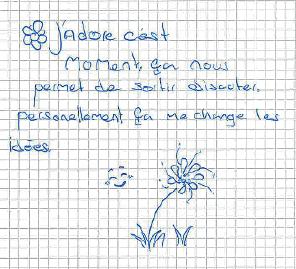 j'Adore cest
moment, ça nous
permet de sortir discuter.
personellement, ça me change les
idées.